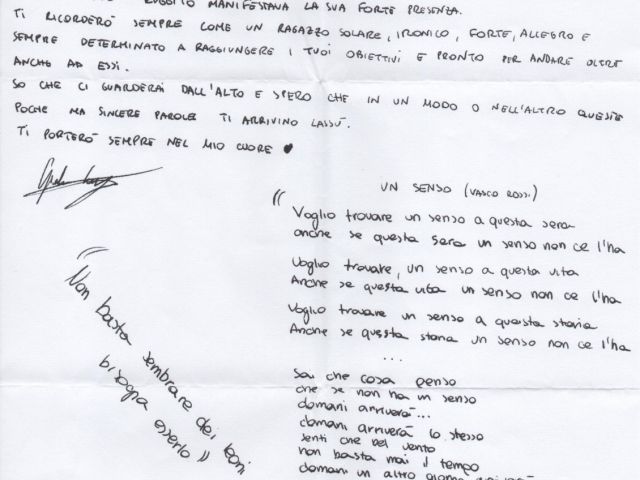 RUGGITO MANIFESTAVA LA SUA FORTE PRESENZA.
TI RICORDERÒ SEMPRE COME UN RAGAZZO SOLARE, IRONICO, FORTE, ALLEGRO E
SEMPRE DETERMINATO A RAGGIUNGERE I TUOI OBIETTIVI E PRONTO PER ANDARE OLTRE
ANCHE AD ESSI.
SO CHE CI GUARDERAI DALL'ALTO E SPERO CHE IN UN MODO O NELL'ALTRO QUESTE
POCHE MA SINCERE PAROLE TI ARRIVINO LASSÙ.
TI PORTERÒ SEMPRE NEL MIO CUORE ♥
UN SENSO (VASCO ROSSI)
"Voglio trovare un senso a questa sera
anche se questa sera un senso non ce l'ha
Voglio trovare, un senso a questa vita
Anche se questa vita un senso non ce l'ha
Voglio trovare un senso a questa storia
Anche se questa storia un senso non ce l'ha
...
Sai che cosa penso
che se non ha un senso
domani arriverà...
domani arriverà lo stesso
senti che bel vento
non basta mai il tempo
domani un altro giorno
"Non basta sembrare dei leoni
bisogna esserlo"